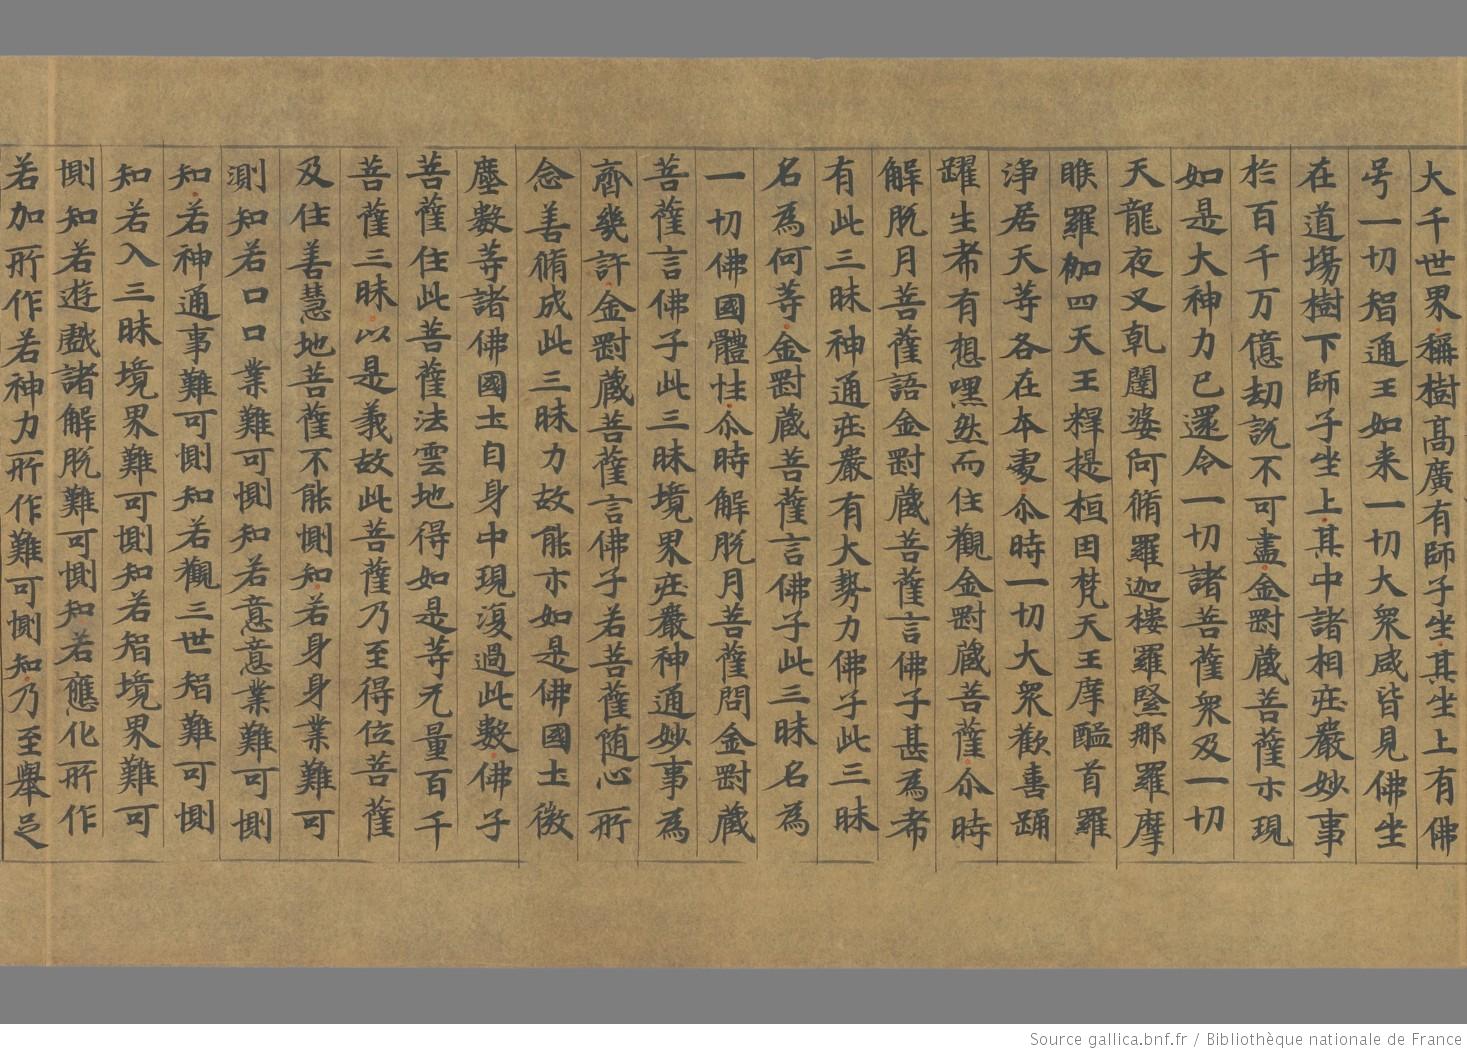 大千世界稱樹高廣有師子坐其坐上有佛
号一切智通王如来一切大衆咸皆見佛坐
在道塲樹下師子坐上其中諸相庄嚴妙事
於百千万億劫說不可盡金剛藏菩薩示現
如是大神力已還令一切諸菩薩衆及一切
天龍夜叉乹闥婆阿脩羅迦樓羅緊那羅摩
睺羅伽四天王釋提桓因梵天王摩醯首羅
淨居天等各在本處尒時一切大衆歡喜踊
躍生希有想嘿然而住觀金剛藏菩薩尒時
解脫月菩薩語金剛藏菩薩言佛子甚為希
有此三昧神通庄嚴有大勢力佛子此三昧
名為何等金剛藏菩薩言佛子此三昧名為
一切佛國體性尒時解脫月菩薩問金剛藏
菩薩言佛子此三昧境界庄嚴神通妙事為
齊幾許金剛藏菩薩言佛子若菩薩随心所
念善脩成此三昧力故能示如是佛國土微
塵數等諸佛國土自身中現復過此數佛子
菩薩住此菩薩法雲地得如是等无量百千
菩薩三昧以是義故此菩薩乃至得位菩薩
及住善慧地菩薩不能惻知若身身業難可
測知若口口業難可惻知若意意業難可惻
知若神通事難可惻知若觀三世智難可惻
知若入三昧境界難可惻知若智境界難可
惻知若遊戲諸解脫難可惻知若應化所作
若加所作若神力所作難可惻知乃至舉足
Source gallica.bnf.fr / Bibliothèque nationale de France